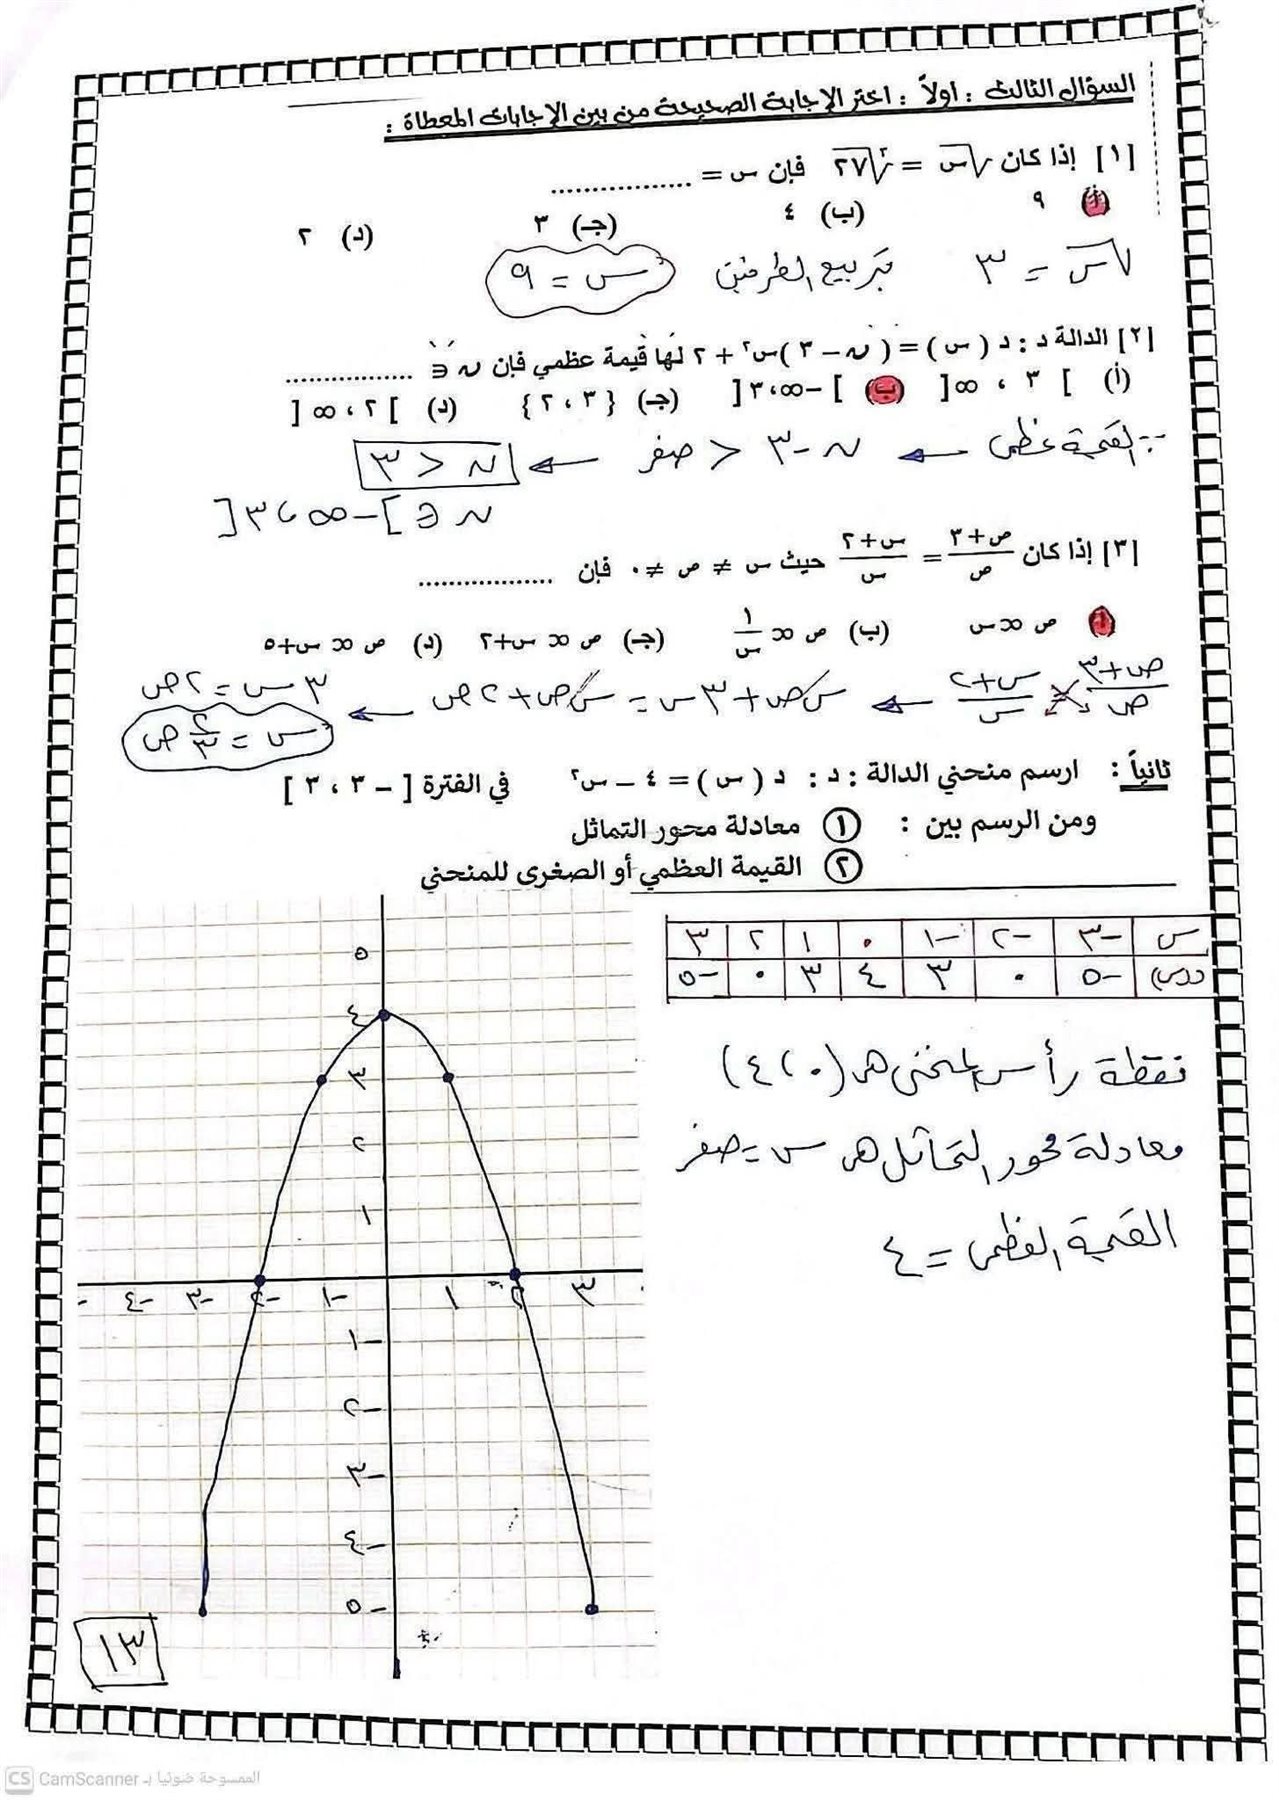 السؤال الثالث : اولاً : اختر الإجابة الصحيحة من بين الإجابات المعطاة :
[١] إذا كان √س = ∛٢٧ فإن س = .................
(أ) ٩ (ب) ٤ (جـ) ٣ (د) ٢
√س = ٣ بتربيع الطرفين س = ٩
[٢] الدالة د : د ( س ) = ( ن – ٣ )س٢ + ٢ لها قيمة عظمي فإن ن ∈ .................
(أ) ] ٣ ، ∞ [ (ب) ] –∞ ، ٣ [ (جـ) { ٣ ، ٢ } (د) ] ٢ ، ∞ [
∵ القيمة عظمى ← ن – ٣ < صفر ← ن < ٣
ن ∈ ] – ∞ ، ٣ [
[٣] إذا كان (ص + ٣)/ص = (س + ٢)/س حيث س ≠ ص ≠ ٠ فإن .................
(أ) ص ∝ س (ب) ص ∝ ١/س (جـ) ص ∝ س+٢ (د) ص ∝ س+٥
(ص + ٣)/ص = (س + ٢)/س ← س ص + ٣ س = س ص + ٢ ص ← ٣ س = ٢ ص
س = ٢/٣ ص
ثانياً : ارسم منحني الدالة : د : د ( س ) = ٤ – س٢ في الفترة [ – ٣ ، ٣ ]
ومن الرسم بين : ① معادلة محور التماثل
② القيمة العظمي أو الصغرى للمنحني
س -٣ -٢ -١ ٠ ١ ٢ ٣
د(س) -٥ ٠ ٣ ٤ ٣ ٠ -٥
نقطة رأس المنحنى هى (٠ ، ٤)
معادلة محور التماثل هى س = صفر
القيمة العظمى = ٤
٥
٤
٣
٢
١
-٤ -٣ -٢ -١ ١ ٢ ٣
-١
-٢
-٣
-٤
-٥
١٣
الممسوحة ضوئيا بـ CamScanner
CS